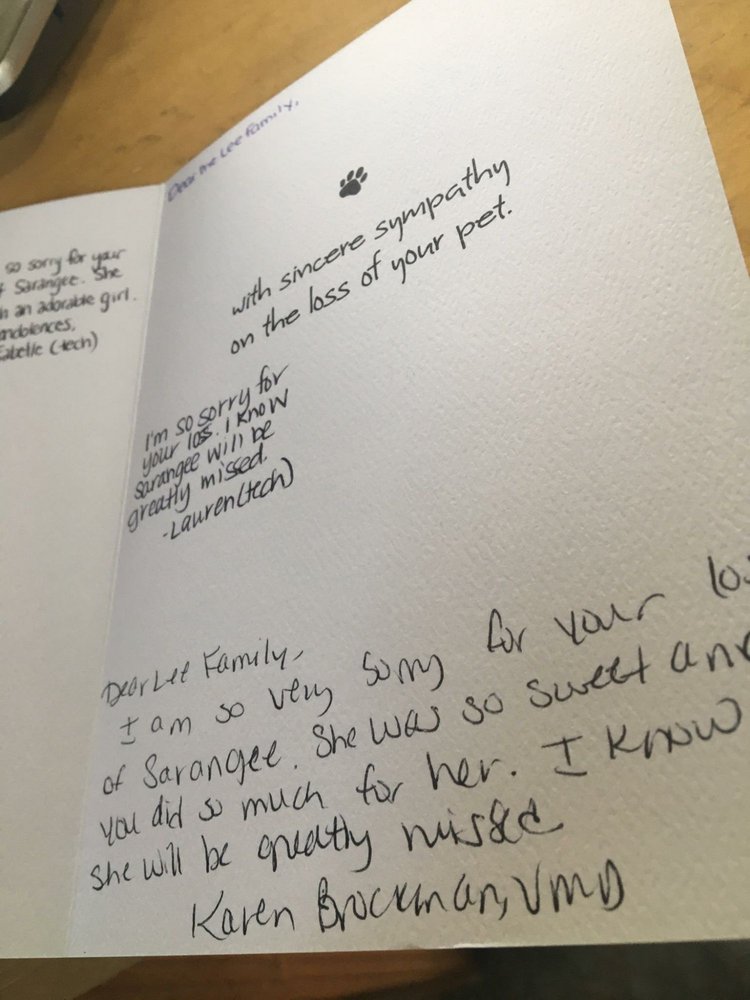 so sorry for your
Sarangee. She
an adorable girl.
(tech)
Dear the Lee Family,
with sincere sympathy
on the loss of your pet.
I'm so sorry for
your loss. I know
Sarangee will be
greatly missed.
-Lauren (tech)
Dear Lee Family,
I am so very sorry for your
of Sarangee. She was so sweet and
you did so much for her. I know
she will be greatly missed
Karen Brockman, VMD